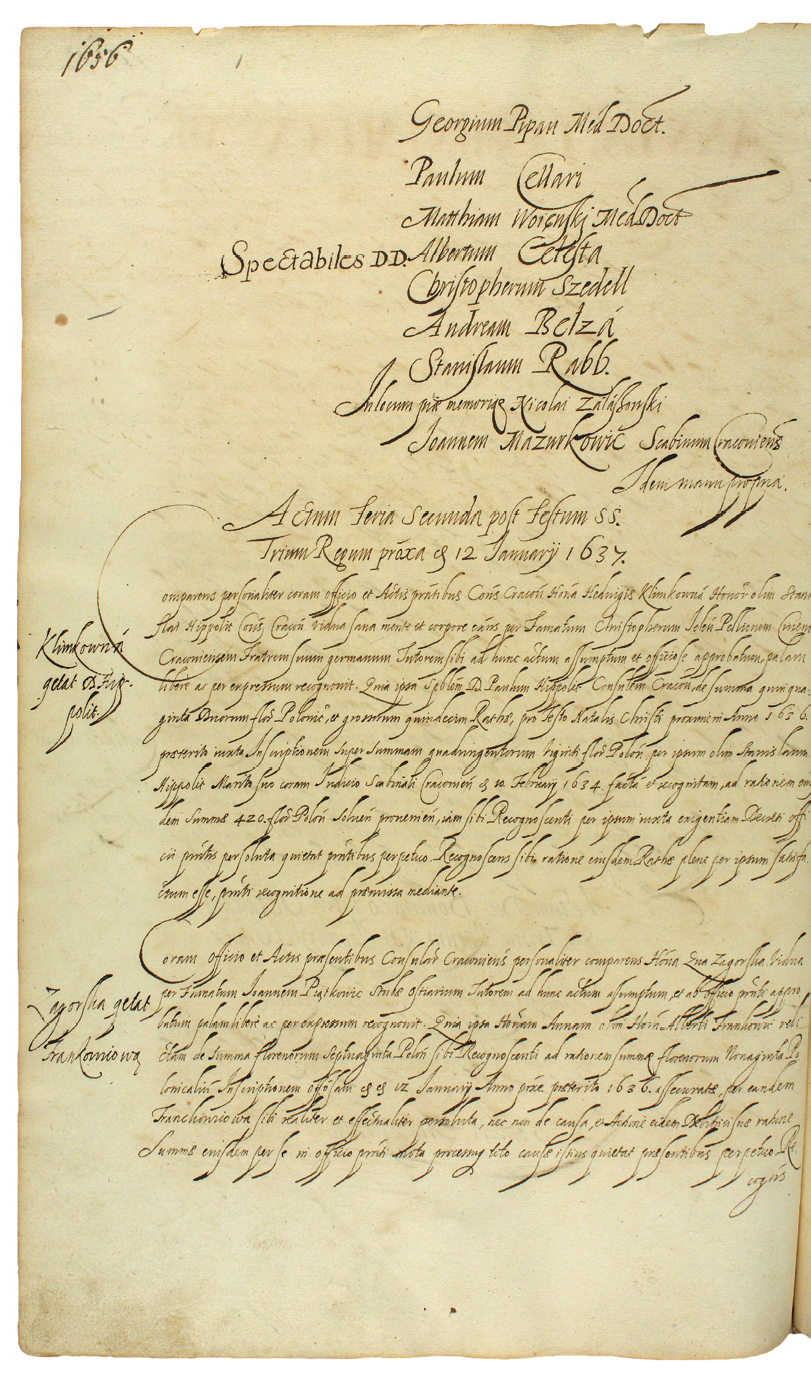 1656
Georgium Pipan Med Doct.
Paulum Cellari
Matthiam Woręnski Med Doct
Spectabiles DD. Albertum Celesta
Christopherum Szedell
Andream Belzá
Stanislaum Rabb.
In locum piæ memoriæ Nicolai Zalaszowski
Joannem Mazurkowic Scabinum Cracouiens
Idem manu propria.
Actum feria Secunda post festum SS.
Trium Regum proxa 12 January 1637.
omparens personaliter coram officio et Actis prńtibus Cons Cracoń Hońa Heduigis Klimkowná Honor olim Stani
slai Hippolit Cons Cracoń Vidua sana mente et corpore eans per famatum Christopherum
Klimkowná
Cracouiensem Fratrem suum germanum Tutorem sibi ad hunc actum assumptum et officiose approbatum, palam
quietat D. Hip-
polit.
libere ac per expressum recognouit. Quia ipsa Spblem D. Paulum Hippolit Consulem Cracoń de summa quinqua-
ginta Duorum flor Polonic, et grossorum quindecim Rathæ, pro festo Natalis Christi proximi Anno 1636.
præterito iuxta Inscriptionem super summam quadringentorum Viginti flor Poloń per ipsum olim Stanislaum
Hippolit Maritu suo coram Judicio Scabinali Cracouień 10 February 1634. factá et recognitam, ad rationem eius
dem Summæ 420. flor Poloń soluen prouenień, iam sibi Recognoscenti per ipsum iuxta exigentiam Decreti offi
cii prńtis persoluta quietat prńtibus perpetuo. Recognoscens sibi ratione eiusdem Rathæ plene per ipsum satisfa
ctum esse, prńti recognitione ad præmissa mediante.
Coram officio et Actis præsentibus Consular Cracouiens personaliter comparens Hońa Eua Zagorska Vidua
Zagorska quietat
per Famatum Joannem Piątkowic Ostiarium Tutorem ad hunc actum assumptum, et ab officio prńti appro
batum palam libere ac per expressum recognouit. Quia ipsa Hońam Annam olim Hońi Alberti Frankowic reli
Frankowicową
ctam de Summa florenorum Septuaginta Poloń sibi Recognoscenti ad rationem summæ florenorum Nonaginta Po
lonicaliu Inscriptionem 12 January Anno proxe præterito 1636. assecuratæ, per eandem
Franckowicowa sibi realiter et effectualiter persoluta, nec non de causa, et Actione ratione
Summæ eiusdem per se in officio prńti mota causæ istius quietat præsentibus perpetuo. Re
cogńs